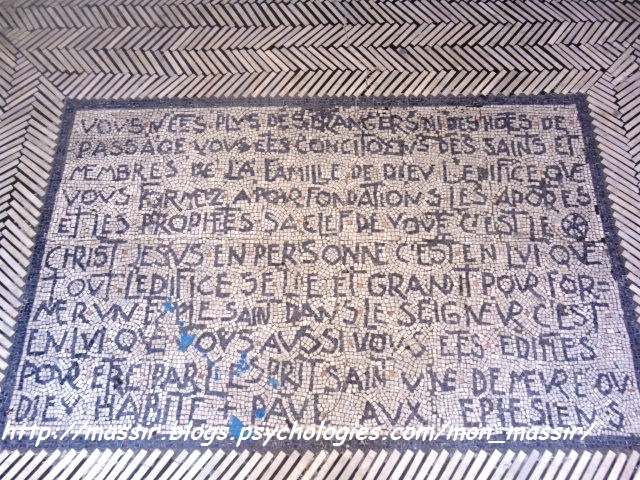 VOUS NETES PLUS DES ETRANGERS NI DES HOTES DE
PASSAGE VOUS ETES CONCITOYENS DES SAINTS ET
MEMBRES DE LA FAMILLE DE DIEU L'EDIFICE QUE
VOUS FORMEZ A POUR FONDATIONS LES APOTRES
ET LES PROPHETES SA CLEF DE VOUTE C'EST LE
CHRIST JESUS EN PERSONNE C'EST EN LUI QUE
TOUT L'EDIFICE SE LIE ET GRANDIT POUR FOR-
MER UN TEMPLE SAINT DANS LE SEIGNEUR C'EST
EN LUI QUE VOUS AUSSI VOUS ETES EDIFIES
POUR ETRE PAR L'ESPRIT SAINT UNE DEMEURE OU
DIEU HABITE - PAUL AUX EPHESIENS
http://massir.blogs.psychologies.com/mon_massir/